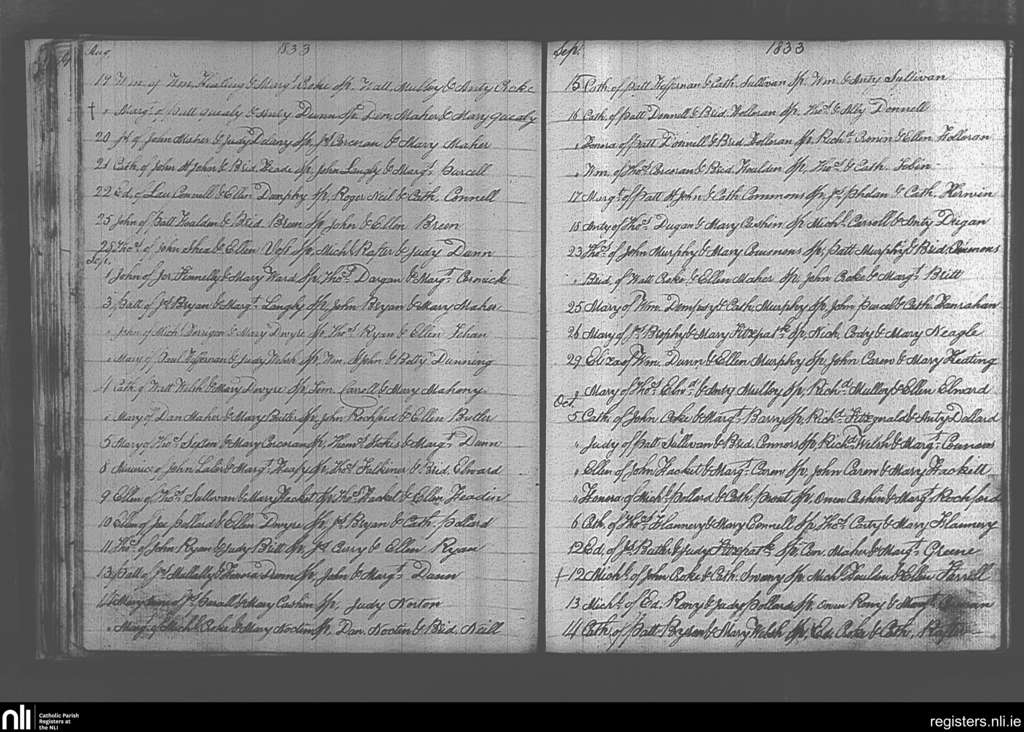 Aug. 1833
19 Wm. of Wm. Keating & Mary Croke Sp. Watt Mullby & Anty Croke
† " Margt. of Patt Gready & Anty Dunn Sp. Dan Maher & Mary Gready
20 Js. of John Maher & Judy Delany Sp. Js. Corcoran & Mary Maher
21 Cath. of John St John & Brid. Meade Sp. John Lingly & Margt. Purcell
22 Ed. of Connell & Ellen Danphy Sp. Roger Neil & Cath. Connell
25 John of Patt Houlden & Brid. Breen Sp. John & Ellen Breen
28 Thos. of John Shea & Ellen Sp. Michl. Rafter & Judy Dunn
Sep.
1 John of Jer. Kennelly & Mary Ward Sp. Thos. Dargan & Margt. Cormick
3 Patt of Js. Bryan & Margt. Langly Sp. John Bryan & Mary Maher
" John of Mich. Berrigan & Mary Dwyre Sp. Thos. Ryan & Ellen Fehan
" Mary of Heffernan & Judy Walsh Sp. Wm. St John & Betty Dunning
4 Cath. of Watt Welsh & Mary Dwyre Sp. Tom. Carroll & Mary Mahony
" Mary of Dan Maher & Mary Butler Sp. John Rochford & Ellen Butler
5 Mary of Thos. & Mary Corcoran Sp. & Margt. Dunn
8 Maurice of John Lalor & Margt. Sp. Thos. Falkiner & Brid. Elward
9 Ellen of Thos. Sullivan & Mary Hacket Sp. Thos. Hacket & Ellen Headin
10 Ellen of Jas. Pollard & Ellen Dwyre Sp. Js. Bryan & Cath. Pollard
11 Thos. of John Ryan & Judy Britt Sp. Js. Curry & Ellen Ryan
13 Patt of Js. Mullally & Honora Dunn Sp. John & Margt. Dunn
of Js. Carroll & Mary Cashin Sp. Judy Norton
" Margt. of Michl. Croke & Mary Nocten Sp. Dan. Nocten & Brid. Neill
Sept. 1833
15 Cath. of Patt Heffernan & Cath. Sullivan Sp. Wm. & Anty Sullivan
16 Cath. of Patt Donnell & Brid. Holloran Sp. Thos. & Alby Donnell
" Honora of Patt Donnell & Brid. Holloran Sp. Richd. Cronin & Ellen Holloran
" Wm. of Thos. Corcoran & Brid. Houlden Sp. Thos. & Cath. Tobin
17 Margt. of Patt St John & Cath. Commons Sp. Js. Phelan & Cath. Kerwin
18 Anty of Thos. Dugan & Mary Cashin Sp. Michl. Carroll & Anty Dugan
23 Thos. of John Murphy & Mary Commons Sp. Patt Murphy & Brid. Commons
" Brid. of Watt Croke & Ellen Maher Sp. John Croke & Margt. Britt
25 Mary of Wm. Dempsy & Cath. Murphy Sp. John Purcell & Cath. Hanrahan
26 Mary of Js. Brophy & Mary Fitzpatk. Sp. Nich. Cody & Mary Neagle
29 Eliza of Wm. Dunn & Ellen Murphy Sp. John Caren & Mary Keating
" Mary of Thos. Elwd. & Anty Mullby Sp. Richd. Mullby & Ellen Elward
Oct.
5 Cath. of John Croke & Margt. Barry Sp. Richd. Fitzgerald & Anty Dallard
" Judy of Patt Sullivan & Brid. Connors Sp. Richd. Welsh & Margt. Connors
" Ellen of John Hacket & Margt. Caren Sp. John Caren & Mary Hackett
" Honora of Michl. Pollard & Cath. Prout Sp. Owen Cashin & Margt. Rochford
6 Cath. of Thos. Flannery & Mary Connell Sp. Thos. Cody & Mary Flannery
12 Ed. of Js. Butler & Judy Fitzpatk. Sp. Con. Maher & Margt. Greene
† 12 Michl. of John Croke & Cath. Sweny Sp. Michl. Houlden & Ellen Farrell
13 Michl. of Ed. Reny & Judy Pollard Sp. Owen Reny & Margt.
14 Cath. of Patt Brysen & Mary Welsh Sp. Ed. Croke & Cath. Rafter
nli Catholic Parish
Registers at
the NLI
registers.nli.ie